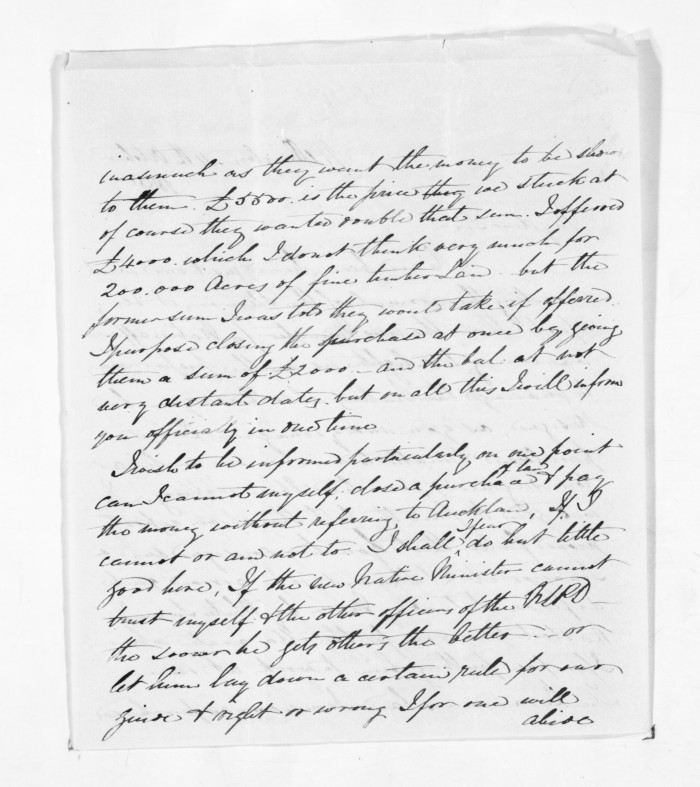 inasmuch as they want the money to be shown
to them. £5500. is the price they we stuck at
of course they wanted double that sum. I offered
£4000. which I do not think very much for
200.000 Acres of fine timber but the
former sum I was told they wont take if offered.
I purpose closing the purchase at once by giving
them a sum of £2000 - and the bal. at not
very distant dates. but on all this I will inform
you officially in due time
I wish to be informed particularly on one point
can I cannot myself, close a purchase of land & pay
the money without referring to Aucklan, If I
cannot or am not to I shall I fear do but little
good here, If the new Native Minister cannot
trust myself & the other officers of the
the sooner he gets others the better - or
let him lay down a certain rule for our
& right or wrong I for one will
abide